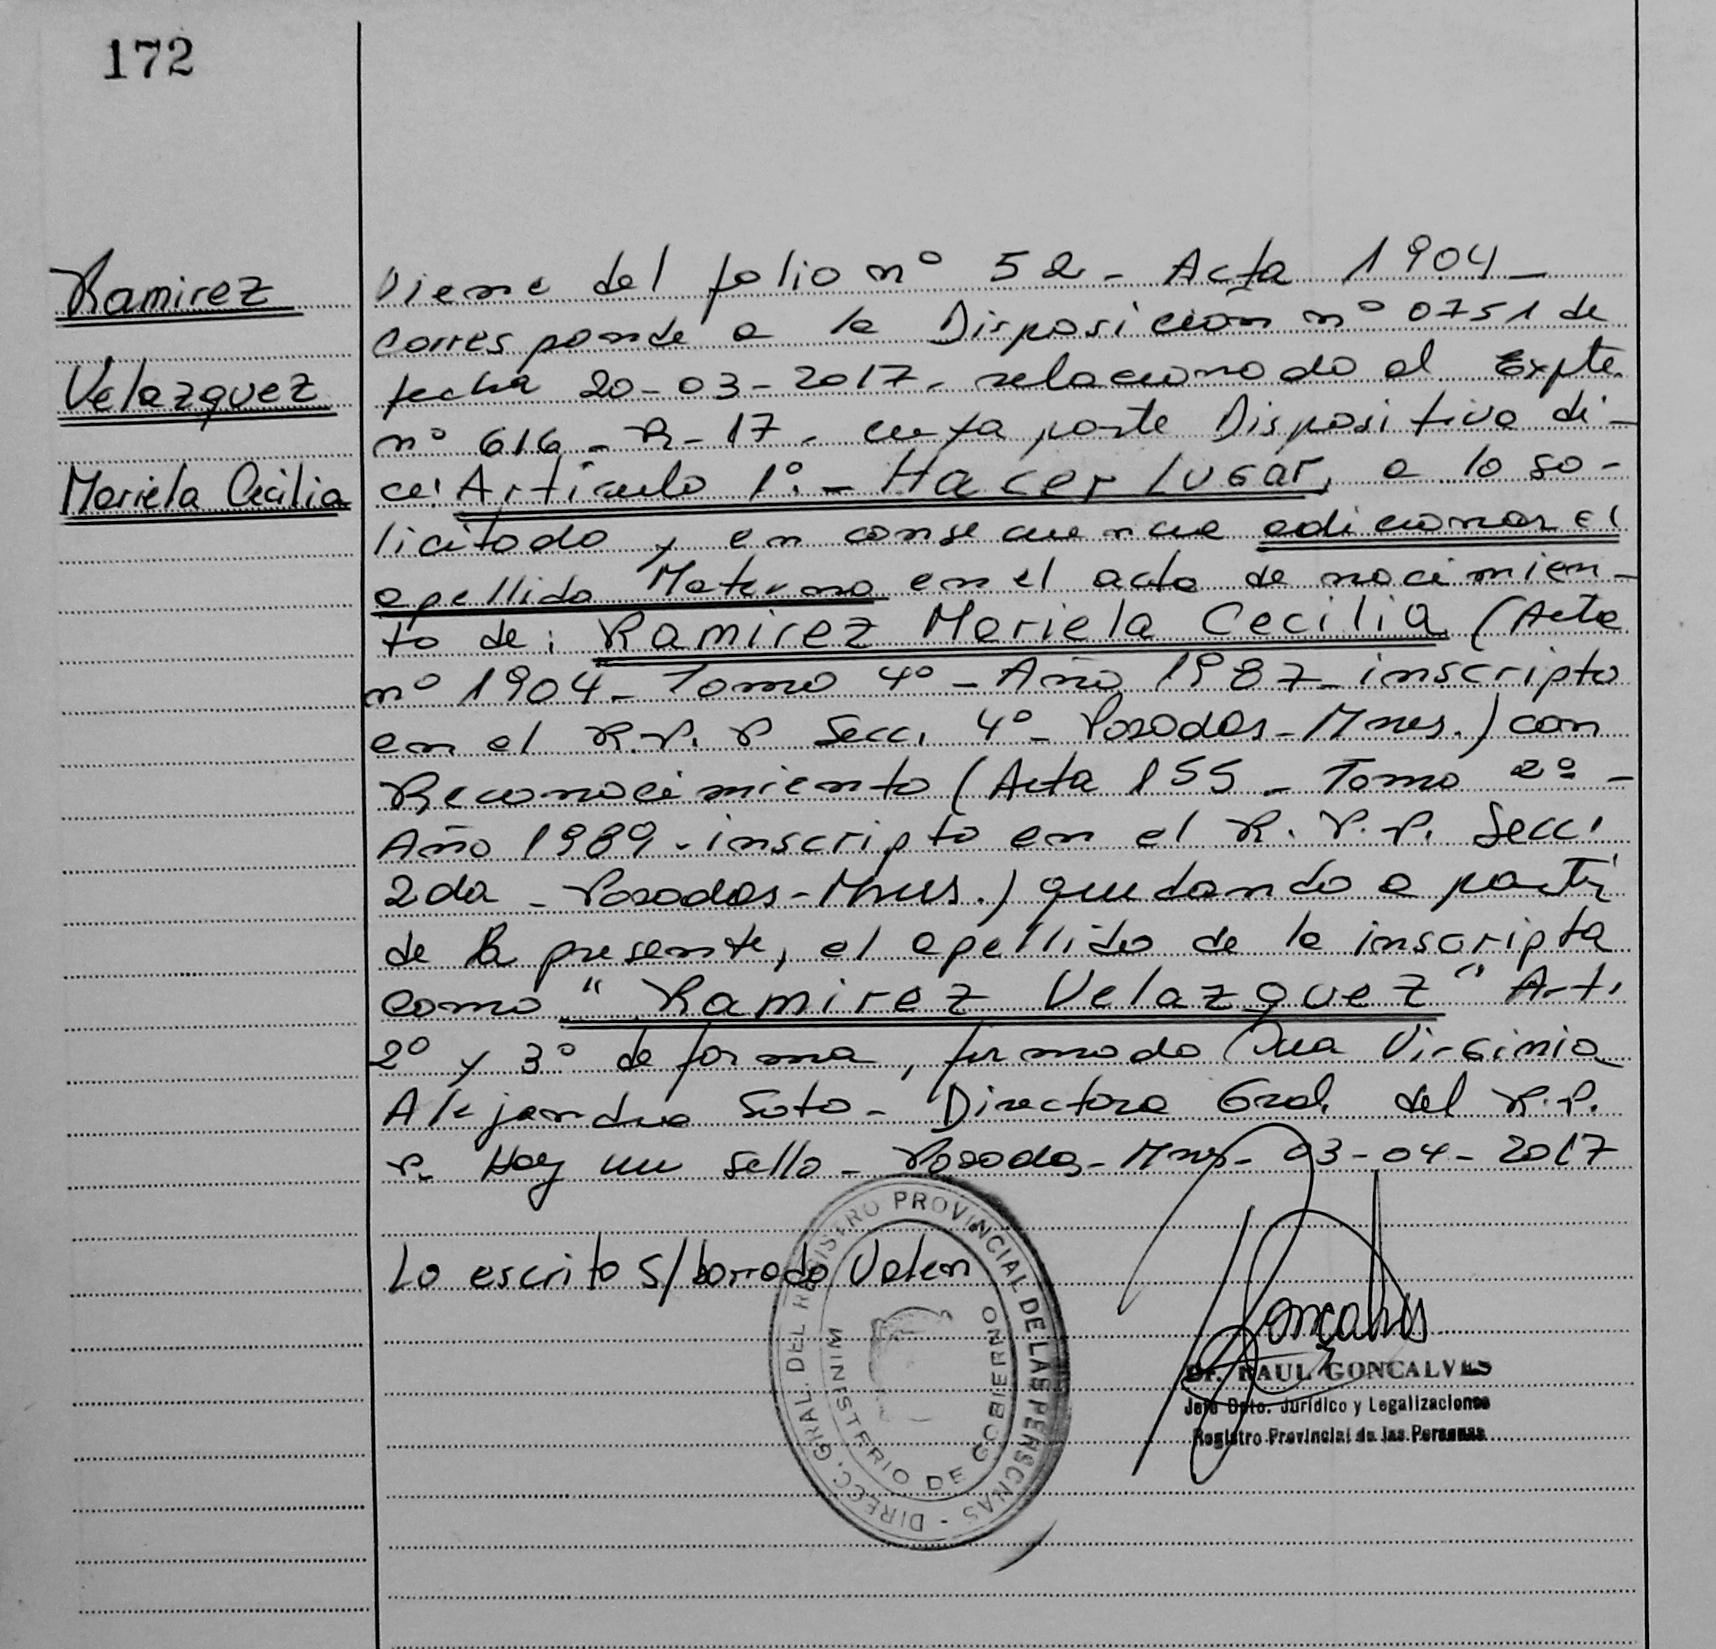 172
Ramirez
Velazquez
Mariela Cecilia
Viene del folio nº 52 - Acta 1904 -
Corresponde a la Disposición nº 0751 de
fecha 20-03-2017. relacionado al Expte.
nº 616 - R - 17 - cuya parte Dispositiva di-
ce: Artículo 1º. - Hacer Lugar, a lo so-
licitado y en consecuencia adicionar el
apellido Materno en el acta de nacimien-
to de: Ramirez Mariela Cecilia (Acta
nº 1904 - Tomo 4º - Año 1987 - inscripta
en el R.P.P Secc. 4º - Posadas - Mnes.) con
Reconocimiento (Acta 155 - Tomo 2º -
Año 1989 - inscripto en el R.P.P. Secc.
2da - Posadas - Mnes.) quedando a partir
de la presente, el apellido de la inscripta
como " Ramirez Velazquez " Art.
2º y 3º de forma, firmado Dra Virginia
Alejandra Soto - Directora Gral. del R.P.
P. Hay un sello - Posadas - Mnes - 03-04-2017
Lo escrito s/borrado Valen
DIRECC. GRAL. DEL REGISTRO PROVINCIAL DE LAS PERSONAS -
MINISTERIO DE GOBIERNO
Goncalves
Dr. RAUL GONCALVES
Jefe Dpto. Jurídico y Legalizaciones
Registro Provincial de las Personas